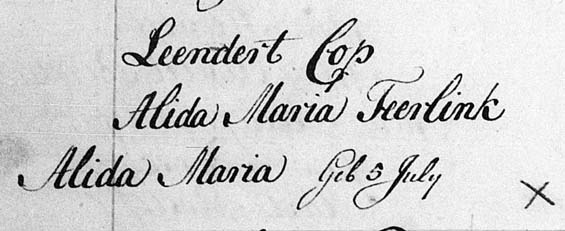 Leendert Cop
Alida Maria Feerlink
Alida Maria Geb 5 July